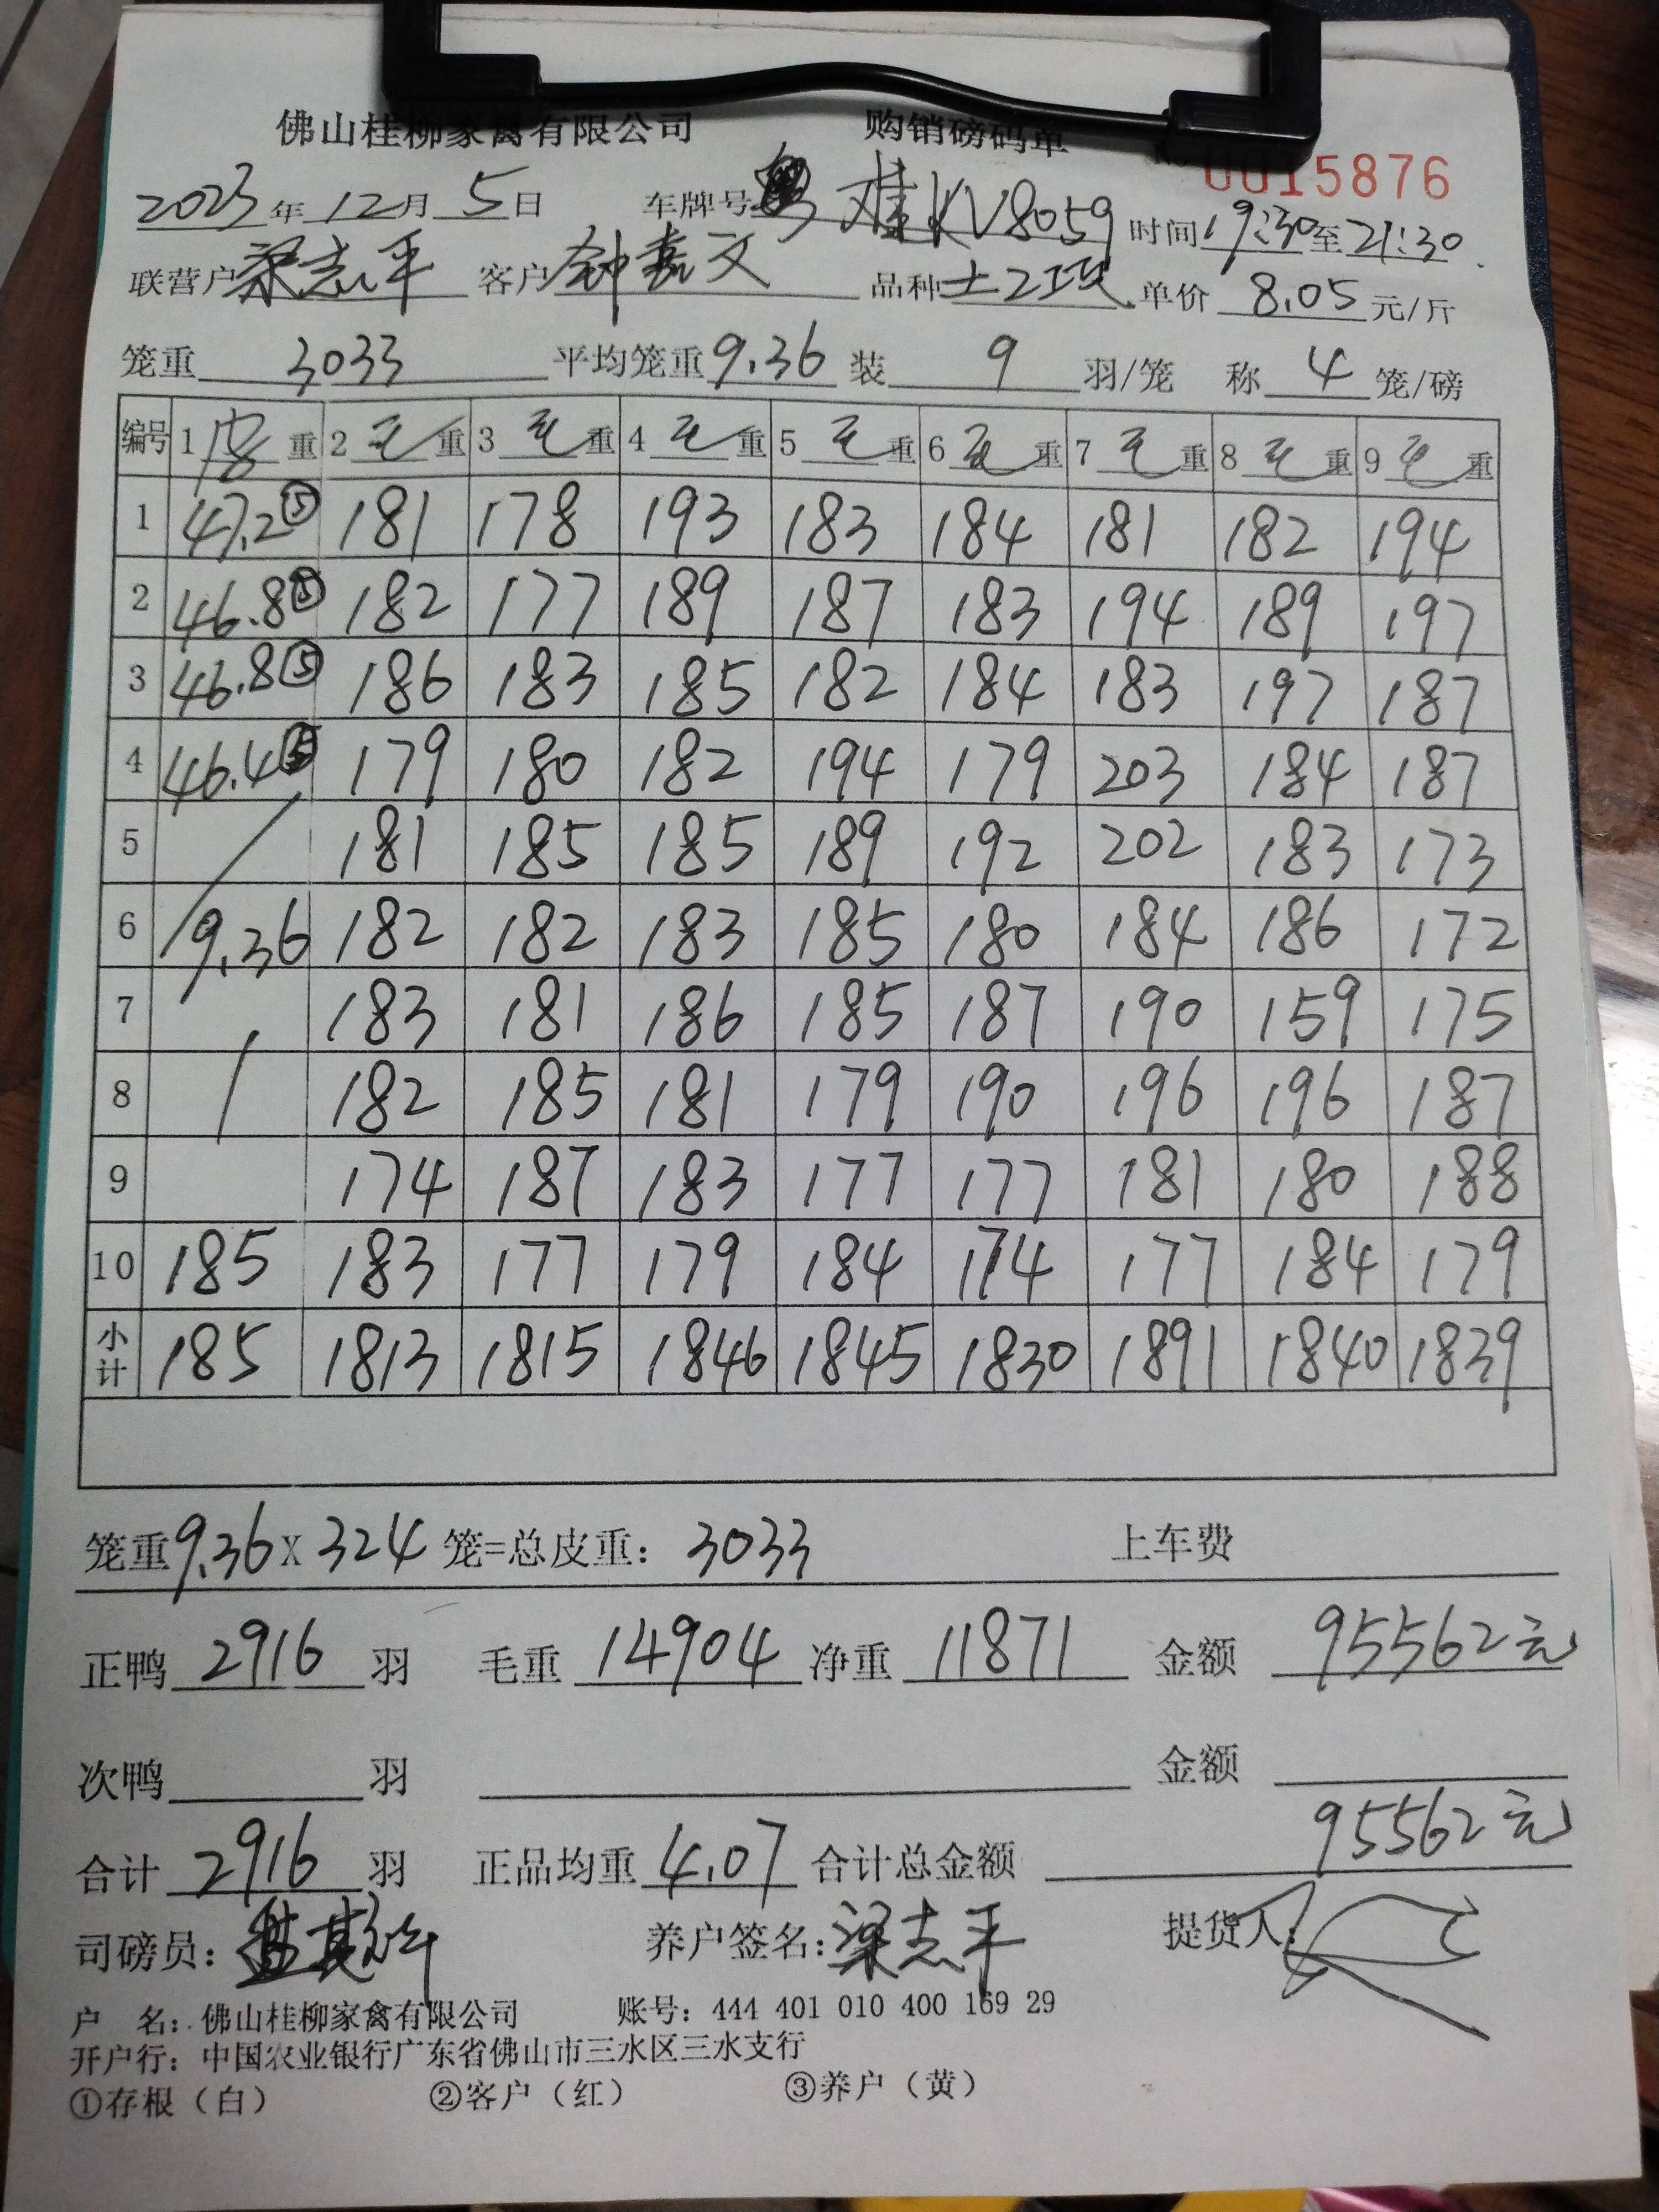 佛山桂柳家禽有限公司 购销磅码单 0015876
2023年12月5日 车牌号 桂KV8059 时间19:30至21:30
联营户梁志平 客户钟嘉文 品种土2项 单价8.05元/斤
笼重3033 平均笼重9.36 装9羽/笼 称4笼/磅
编号 1皮重 2毛重 3毛重 4毛重 5毛重 6毛重 7毛重 8毛重 9毛重
1 47.2⑤ 181 178 193 183 184 181 182 194
2 46.8⑤ 182 177 189 187 183 194 189 197
3 46.8⑤ 186 183 185 182 184 183 197 187
4 46.4⑤ 179 180 182 194 179 203 184 187
5 181 185 185 189 192 202 183 173
6 9.36 182 182 183 185 180 184 186 172
7 183 181 186 185 187 190 159 175
8 182 185 181 179 190 196 196 187
9 174 187 183 177 177 181 180 188
10 185 183 177 179 184 174 177 184 179
小计 185 1813 1815 1846 1845 1830 1891 1840 1839
笼重9.36X324笼=总皮重：3033 上车费
正鸭2916羽 毛重14904净重11871 金额95562元
次鸭 羽 金额
合计2916羽 正品均重4.07合计总金额95562元
司磅员： 养户签名：梁志平 提货人：
户 名：佛山桂柳家禽有限公司 账号：444 401 010 400 169 29
开户行：中国农业银行广东省佛山市三水区三水支行
①存根（白） ②客户（红） ③养户（黄）